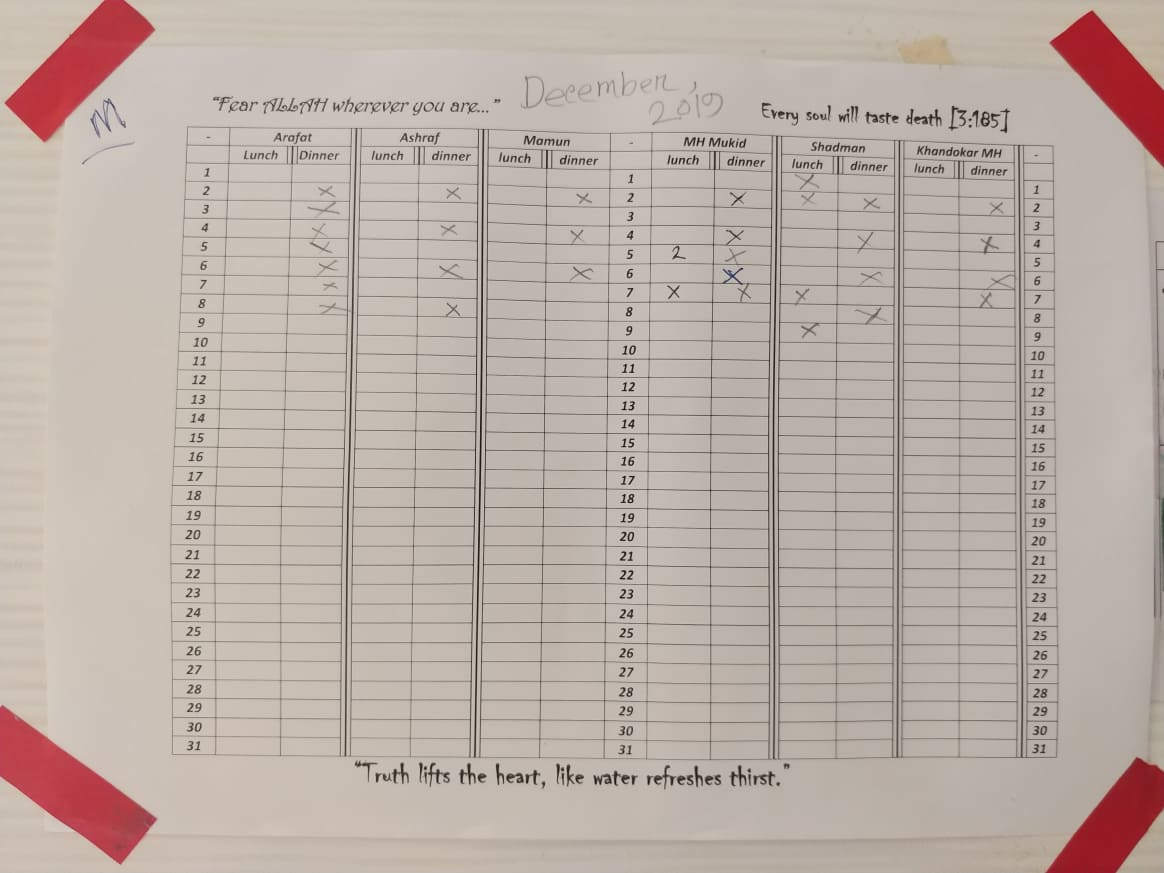 M
"Fear ALLAH wherever you are..." December, 2019 Every soul will taste death [3:185]
- Arafat Ashraf Mamun - MH Mukid Shadman Khandokar MH -
Lunch Dinner lunch dinner lunch dinner lunch dinner lunch dinner lunch dinner
1 1 X 1
2 X X X 2 X X X X 2
3 X 3 3
4 X X X 4 X X X 4
5 X 5 2 X 5
6 X X X 6 X X X 6
7 X 7 X X X X 7
8 X X 8 X 8
9 9 X 9
10 10 10
11 11 11
12 12 12
13 13 13
14 14 14
15 15 15
16 16 16
17 17 17
18 18 18
19 19 19
20 20 20
21 21 21
22 22 22
23 23 23
24 24 24
25 25 25
26 26 26
27 27 27
28 28 28
29 29 29
30 30 30
31 31 31
"Truth lifts the heart, like water refreshes thirst."